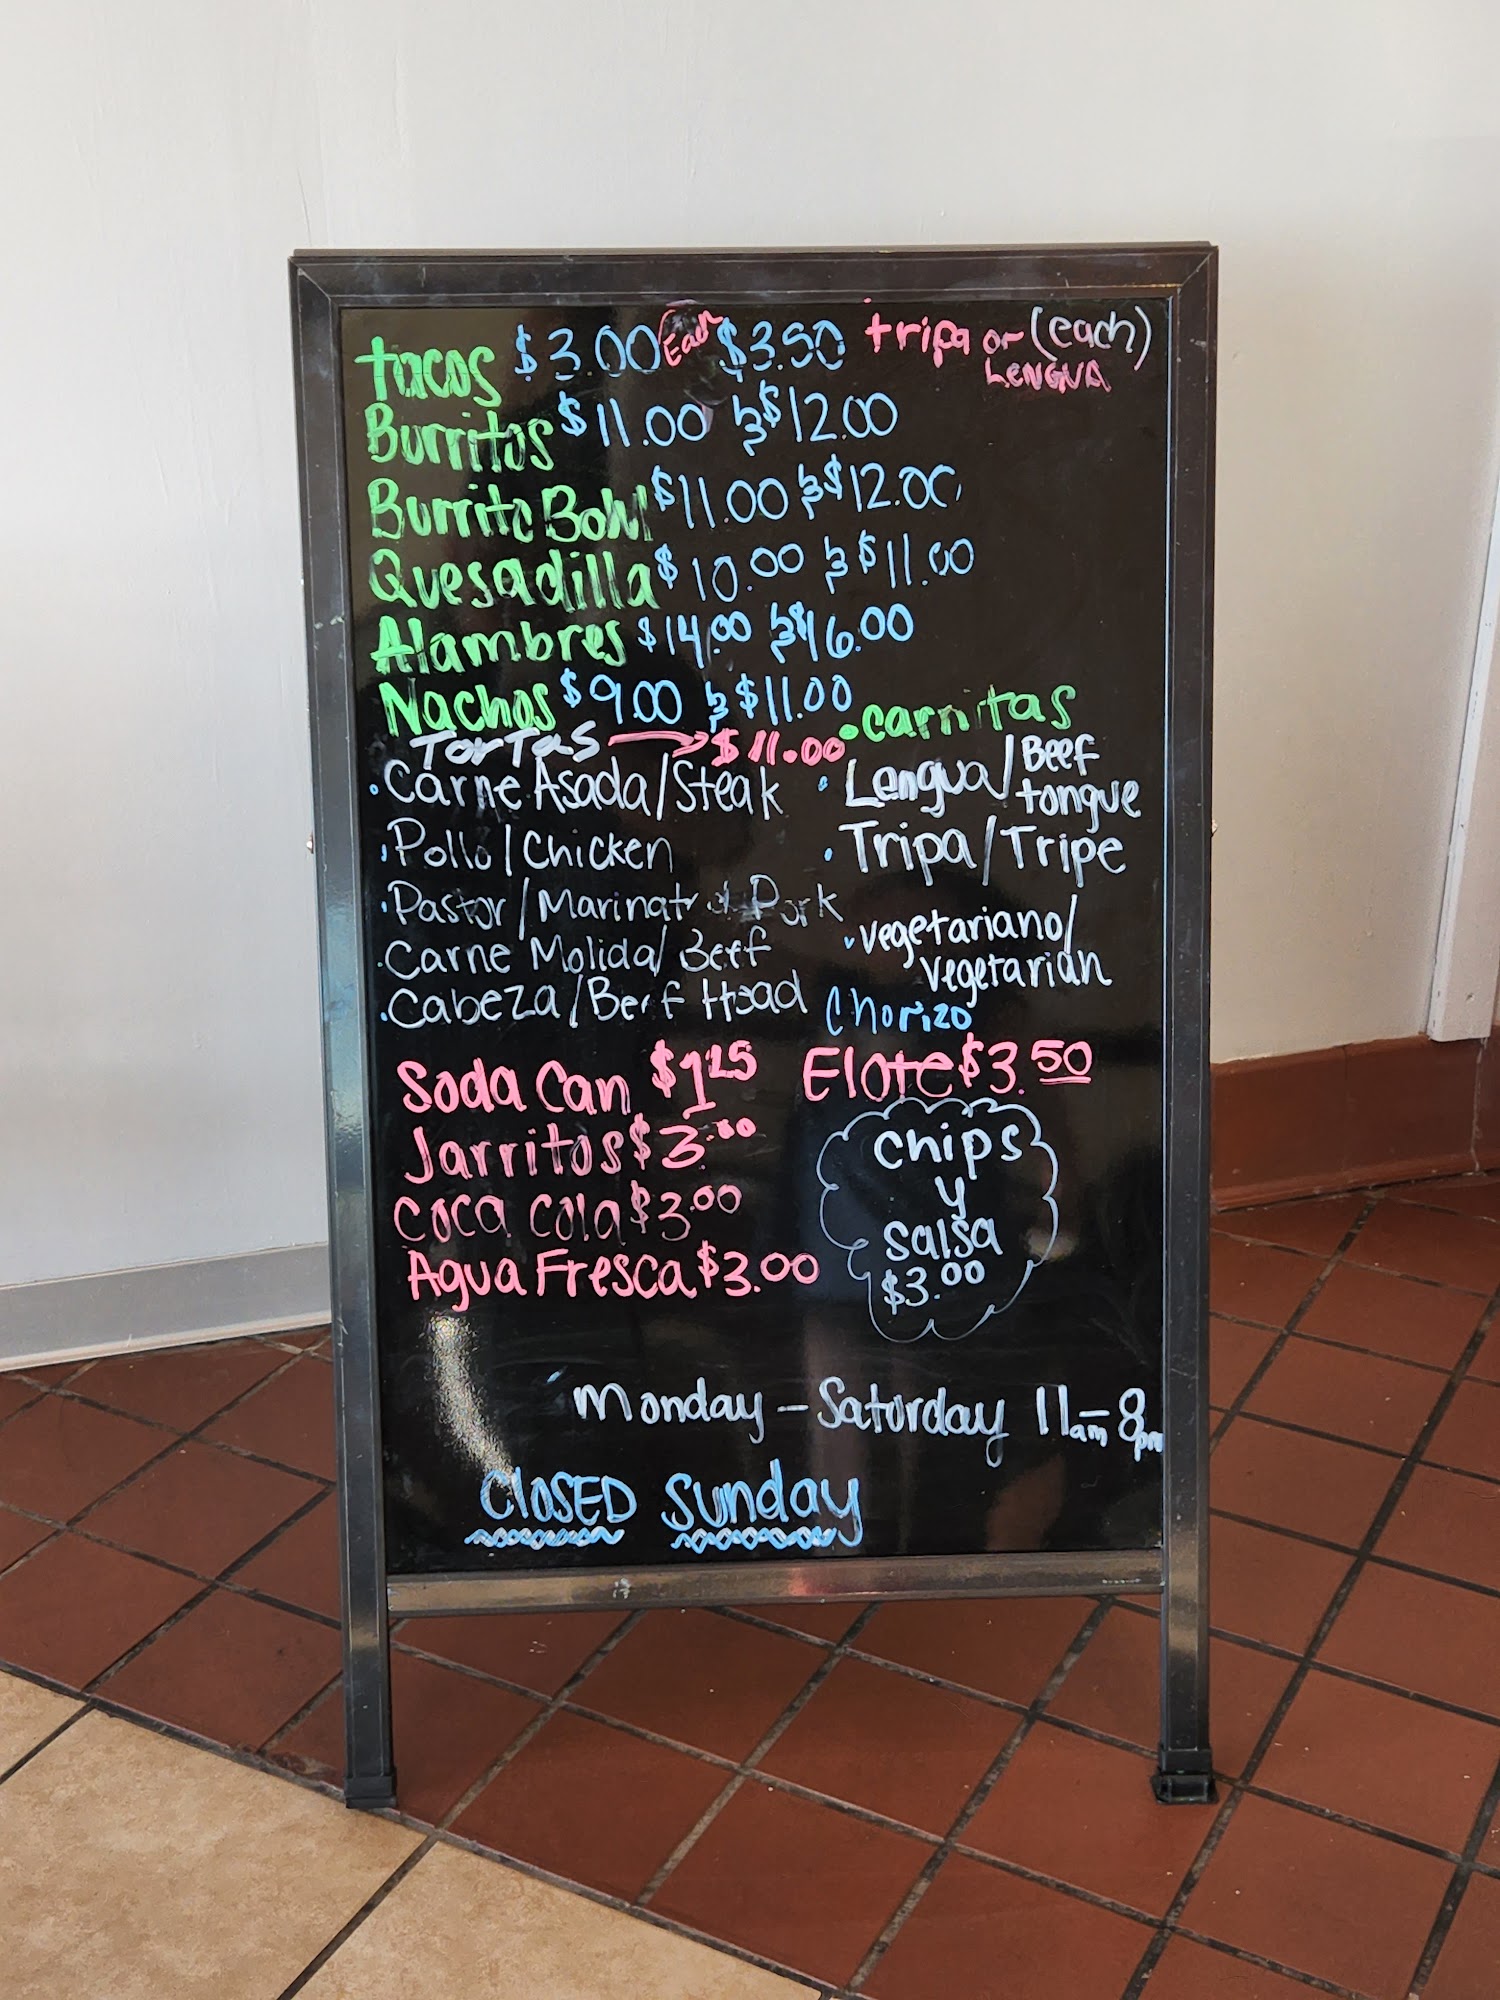 tacos $3.00 Each $3.50 tripa or (each)
LENGUA
Burritos $11.00 y $12.00
Burrito Bowl $11.00 y $12.00
Quesadilla $10.00 y $11.00
Alambres $14.00 y $16.00
Nachos $9.00 y $11.00
TORTAS → $11.00
• Carne Asada/Steak
• Pollo/Chicken
• Pastor/Marinated Pork
• Carne Molida/Beef
• Cabeza/Beef Head
• carnitas
• Lengua/Beef
tongue
• Tripa/Tripe
• vegetariano/
vegetarian
Chorizo
Soda Can $1.25
Jarritos $3.00
Coca Cola $3.00
Agua Fresca $3.00
Elote $3.50
Chips
y
Salsa
$3.00
Monday - Saturday 11am - 8pm
CLOSED Sunday